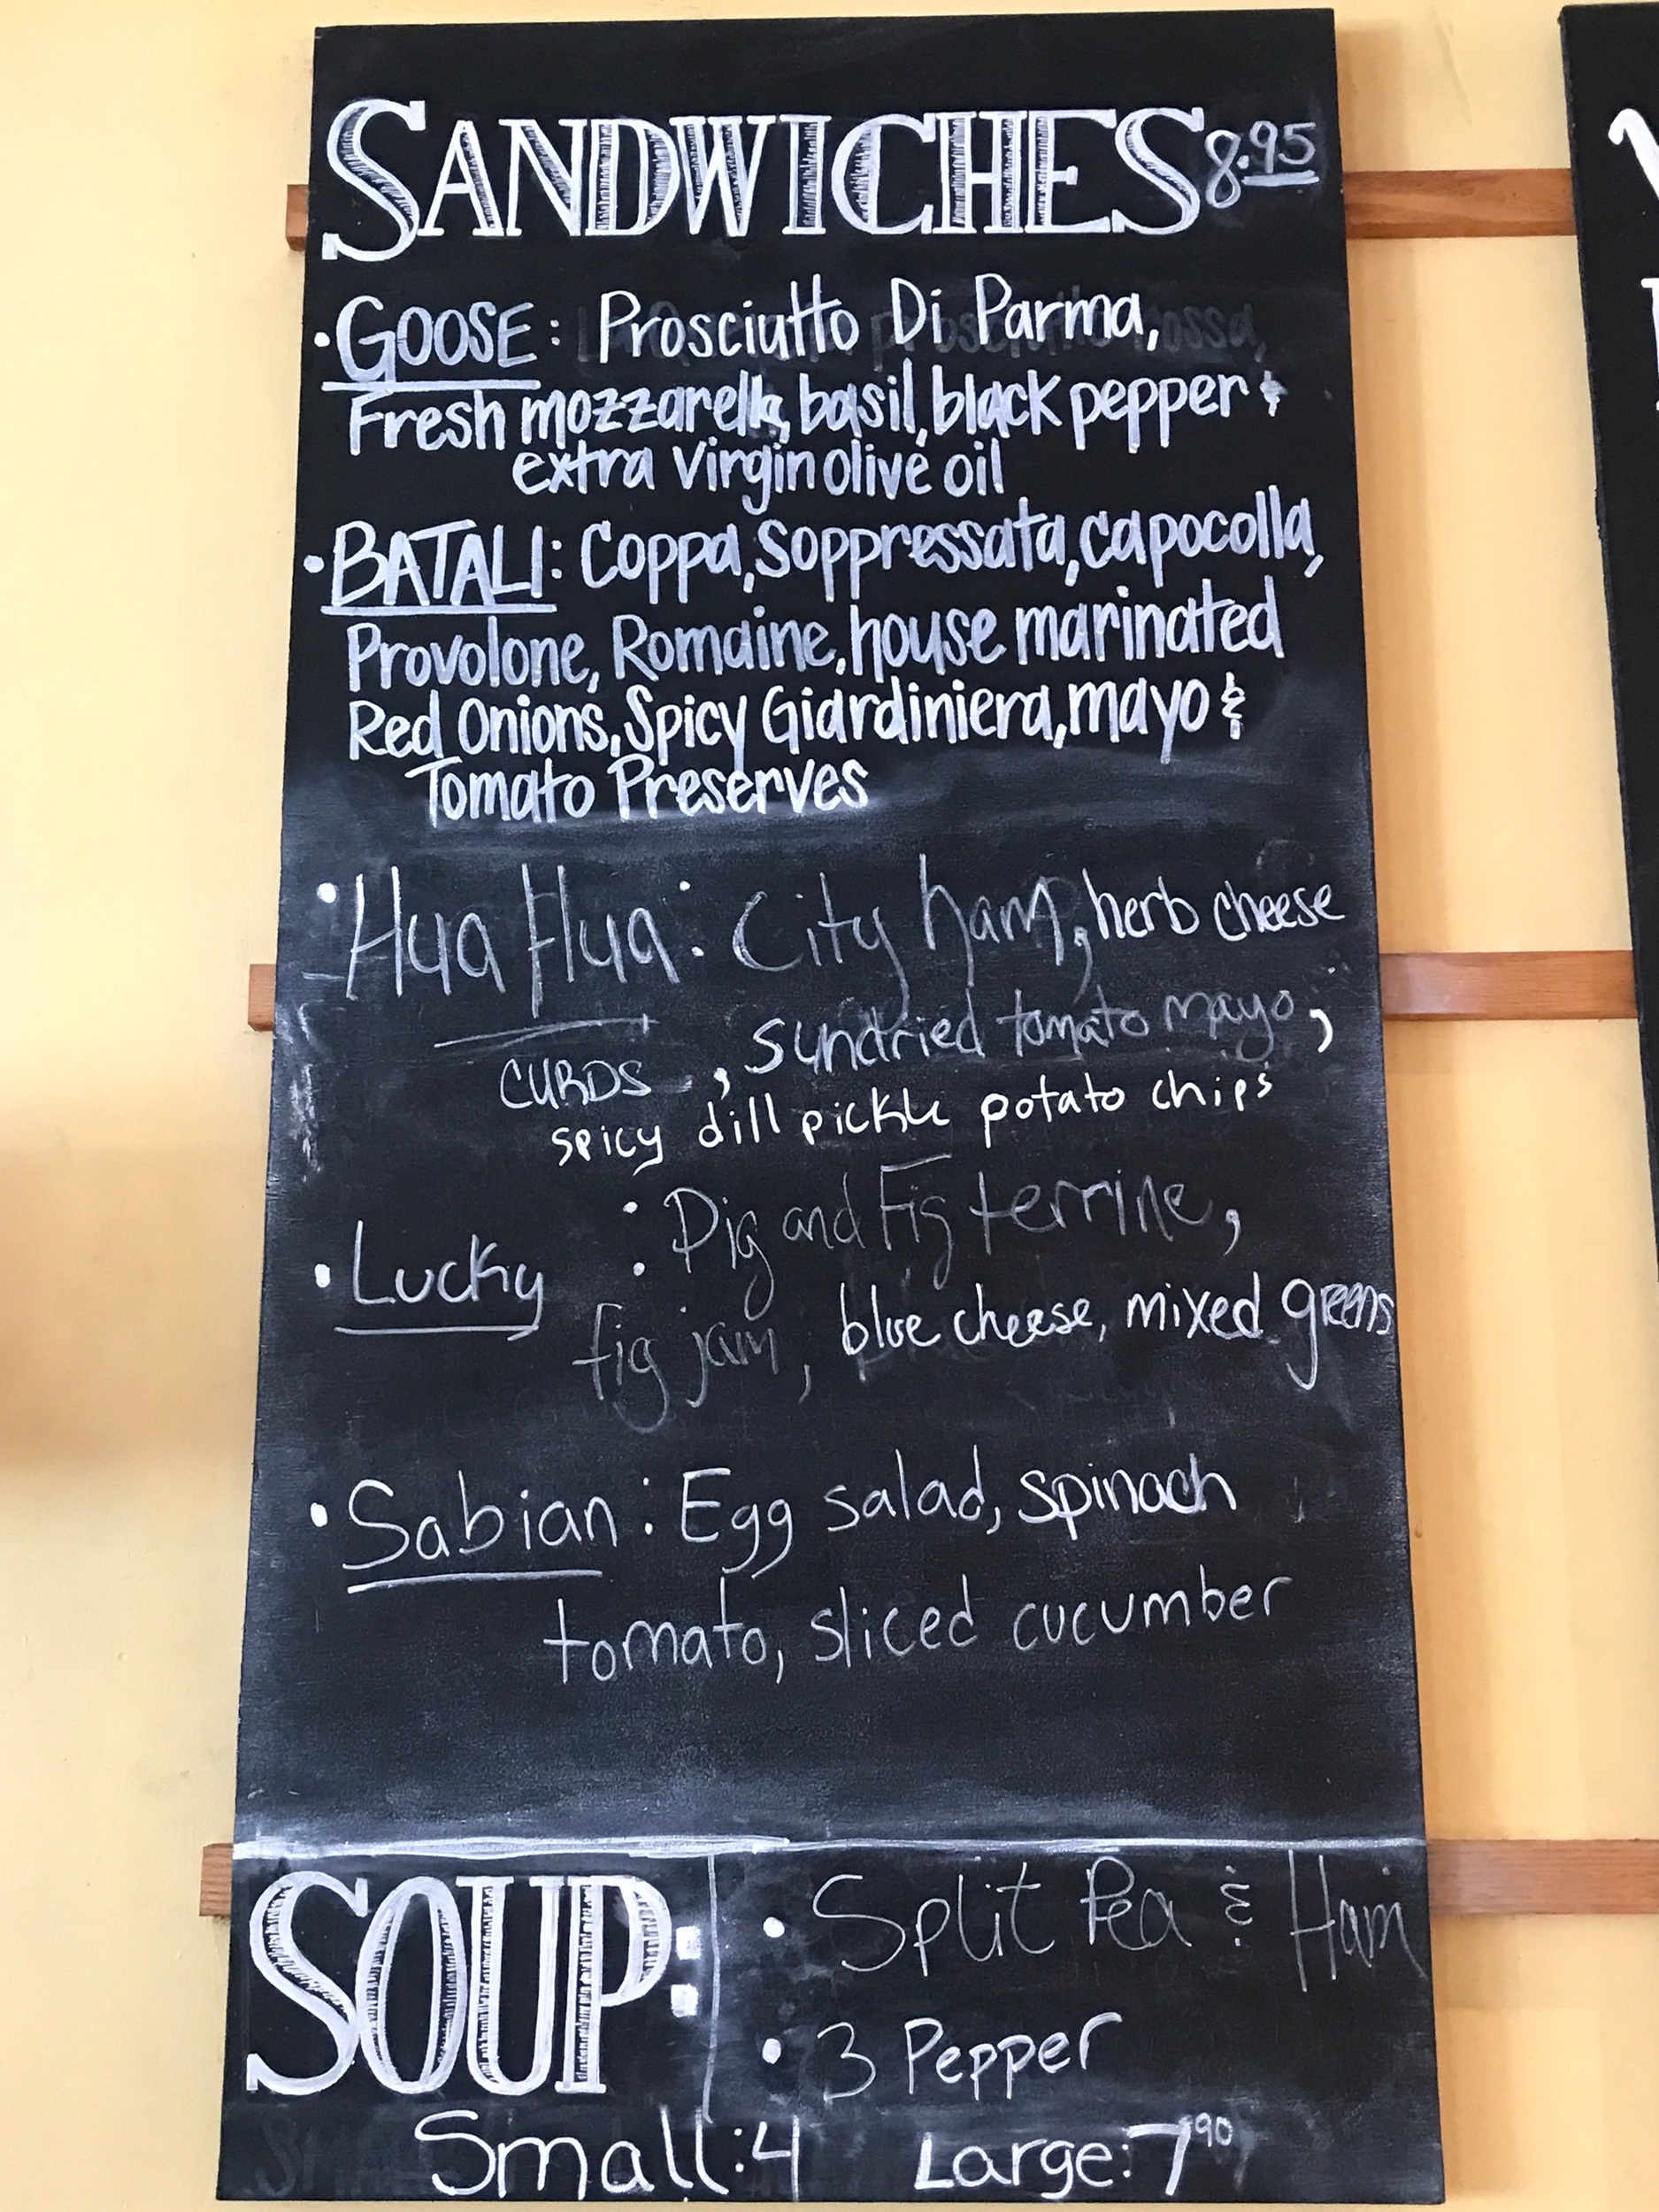 SANDWICHES 8.95
• GOOSE: Prosciutto Di Parma,
Fresh mozzarella, basil, black pepper &
extra virgin olive oil
• BATALI: Coppa, Soppressata, capocolla,
Provolone, Romaine, house marinated
Red Onions, Spicy Giardiniera, mayo &
Tomato Preserves
• Hua Hua: City ham, herb cheese
CURDS, sundried tomato mayo,
spicy dill pickle potato chips
• Lucky : Pig and Fig terrine,
fig jam, blue cheese, mixed greens
• Sabian: Egg salad, spinach
tomato, sliced cucumber
SOUP: • Split Pea & Ham
• 3 Pepper
Small: 4 Large: 7 90